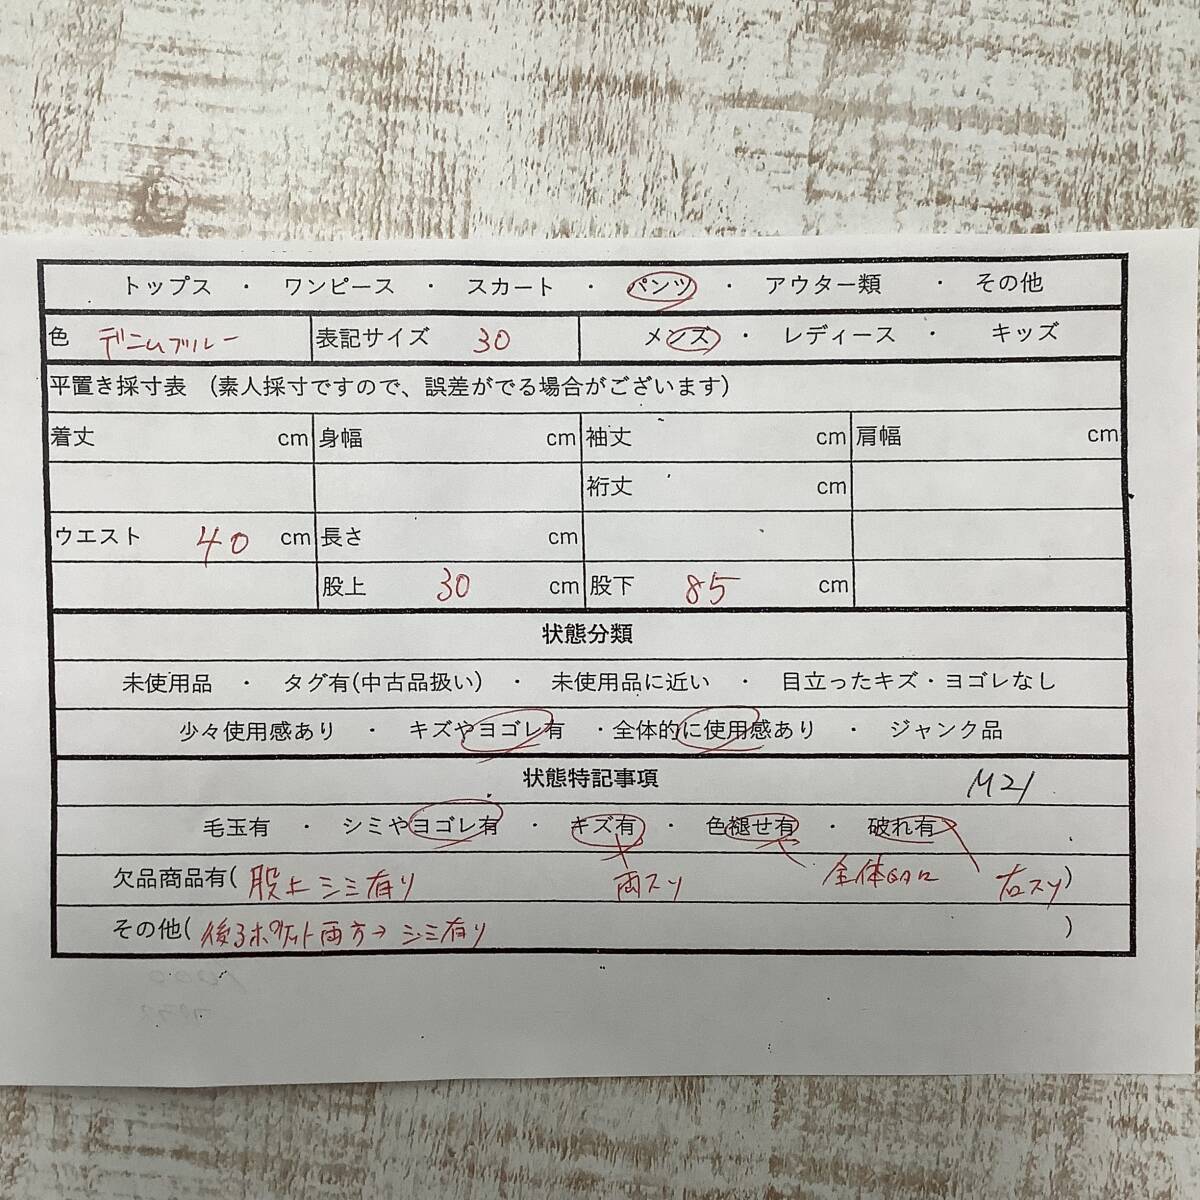 トップス ・ ワンピース ・ スカート ・ パンツ ・ アウター類 ・ その他
色 デニムブルー 表記サイズ 30 メンズ ・ レディース ・ キッズ
平置き採寸表 (素人採寸ですので、誤差がでる場合がございます)
着丈 cm 身幅 cm 袖丈 cm 肩幅 cm
裄丈 cm
ウエスト 40 cm 長さ cm
股上 30 cm 股下 85 cm
状態分類
未使用品 ・ タグ有(中古品扱い) ・ 未使用品に近い ・ 目立ったキズ・ヨゴレなし
少々使用感あり ・ キズやヨゴレ有 ・全体的に使用感あり ・ ジャンク品
状態特記事項 M21
毛玉有 ・ シミやヨゴレ有 ・ キズ有 ・ 色褪せ有 ・ 破れ有
欠品商品有( 股上シミ有り 両スソ 全体的に 右スソ )
その他( 後ろポケット両方→シミ有り )